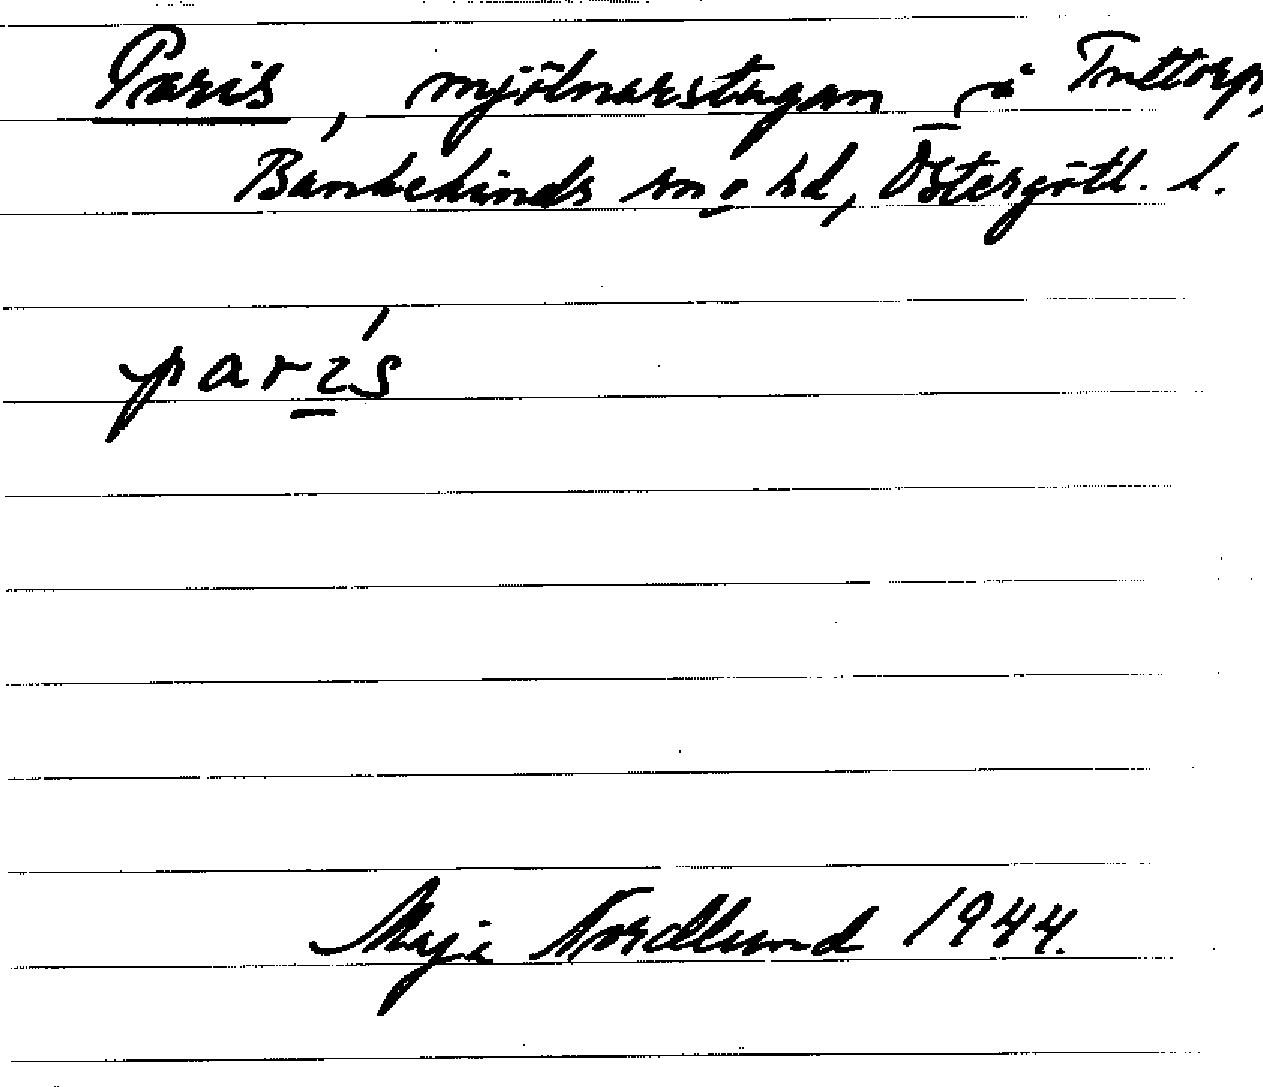 Paris, mjölnarstugan å Tuttorp,
Bankekinds sn o hd, Östergötl. l.
paris
Maja Nordlund 1944.